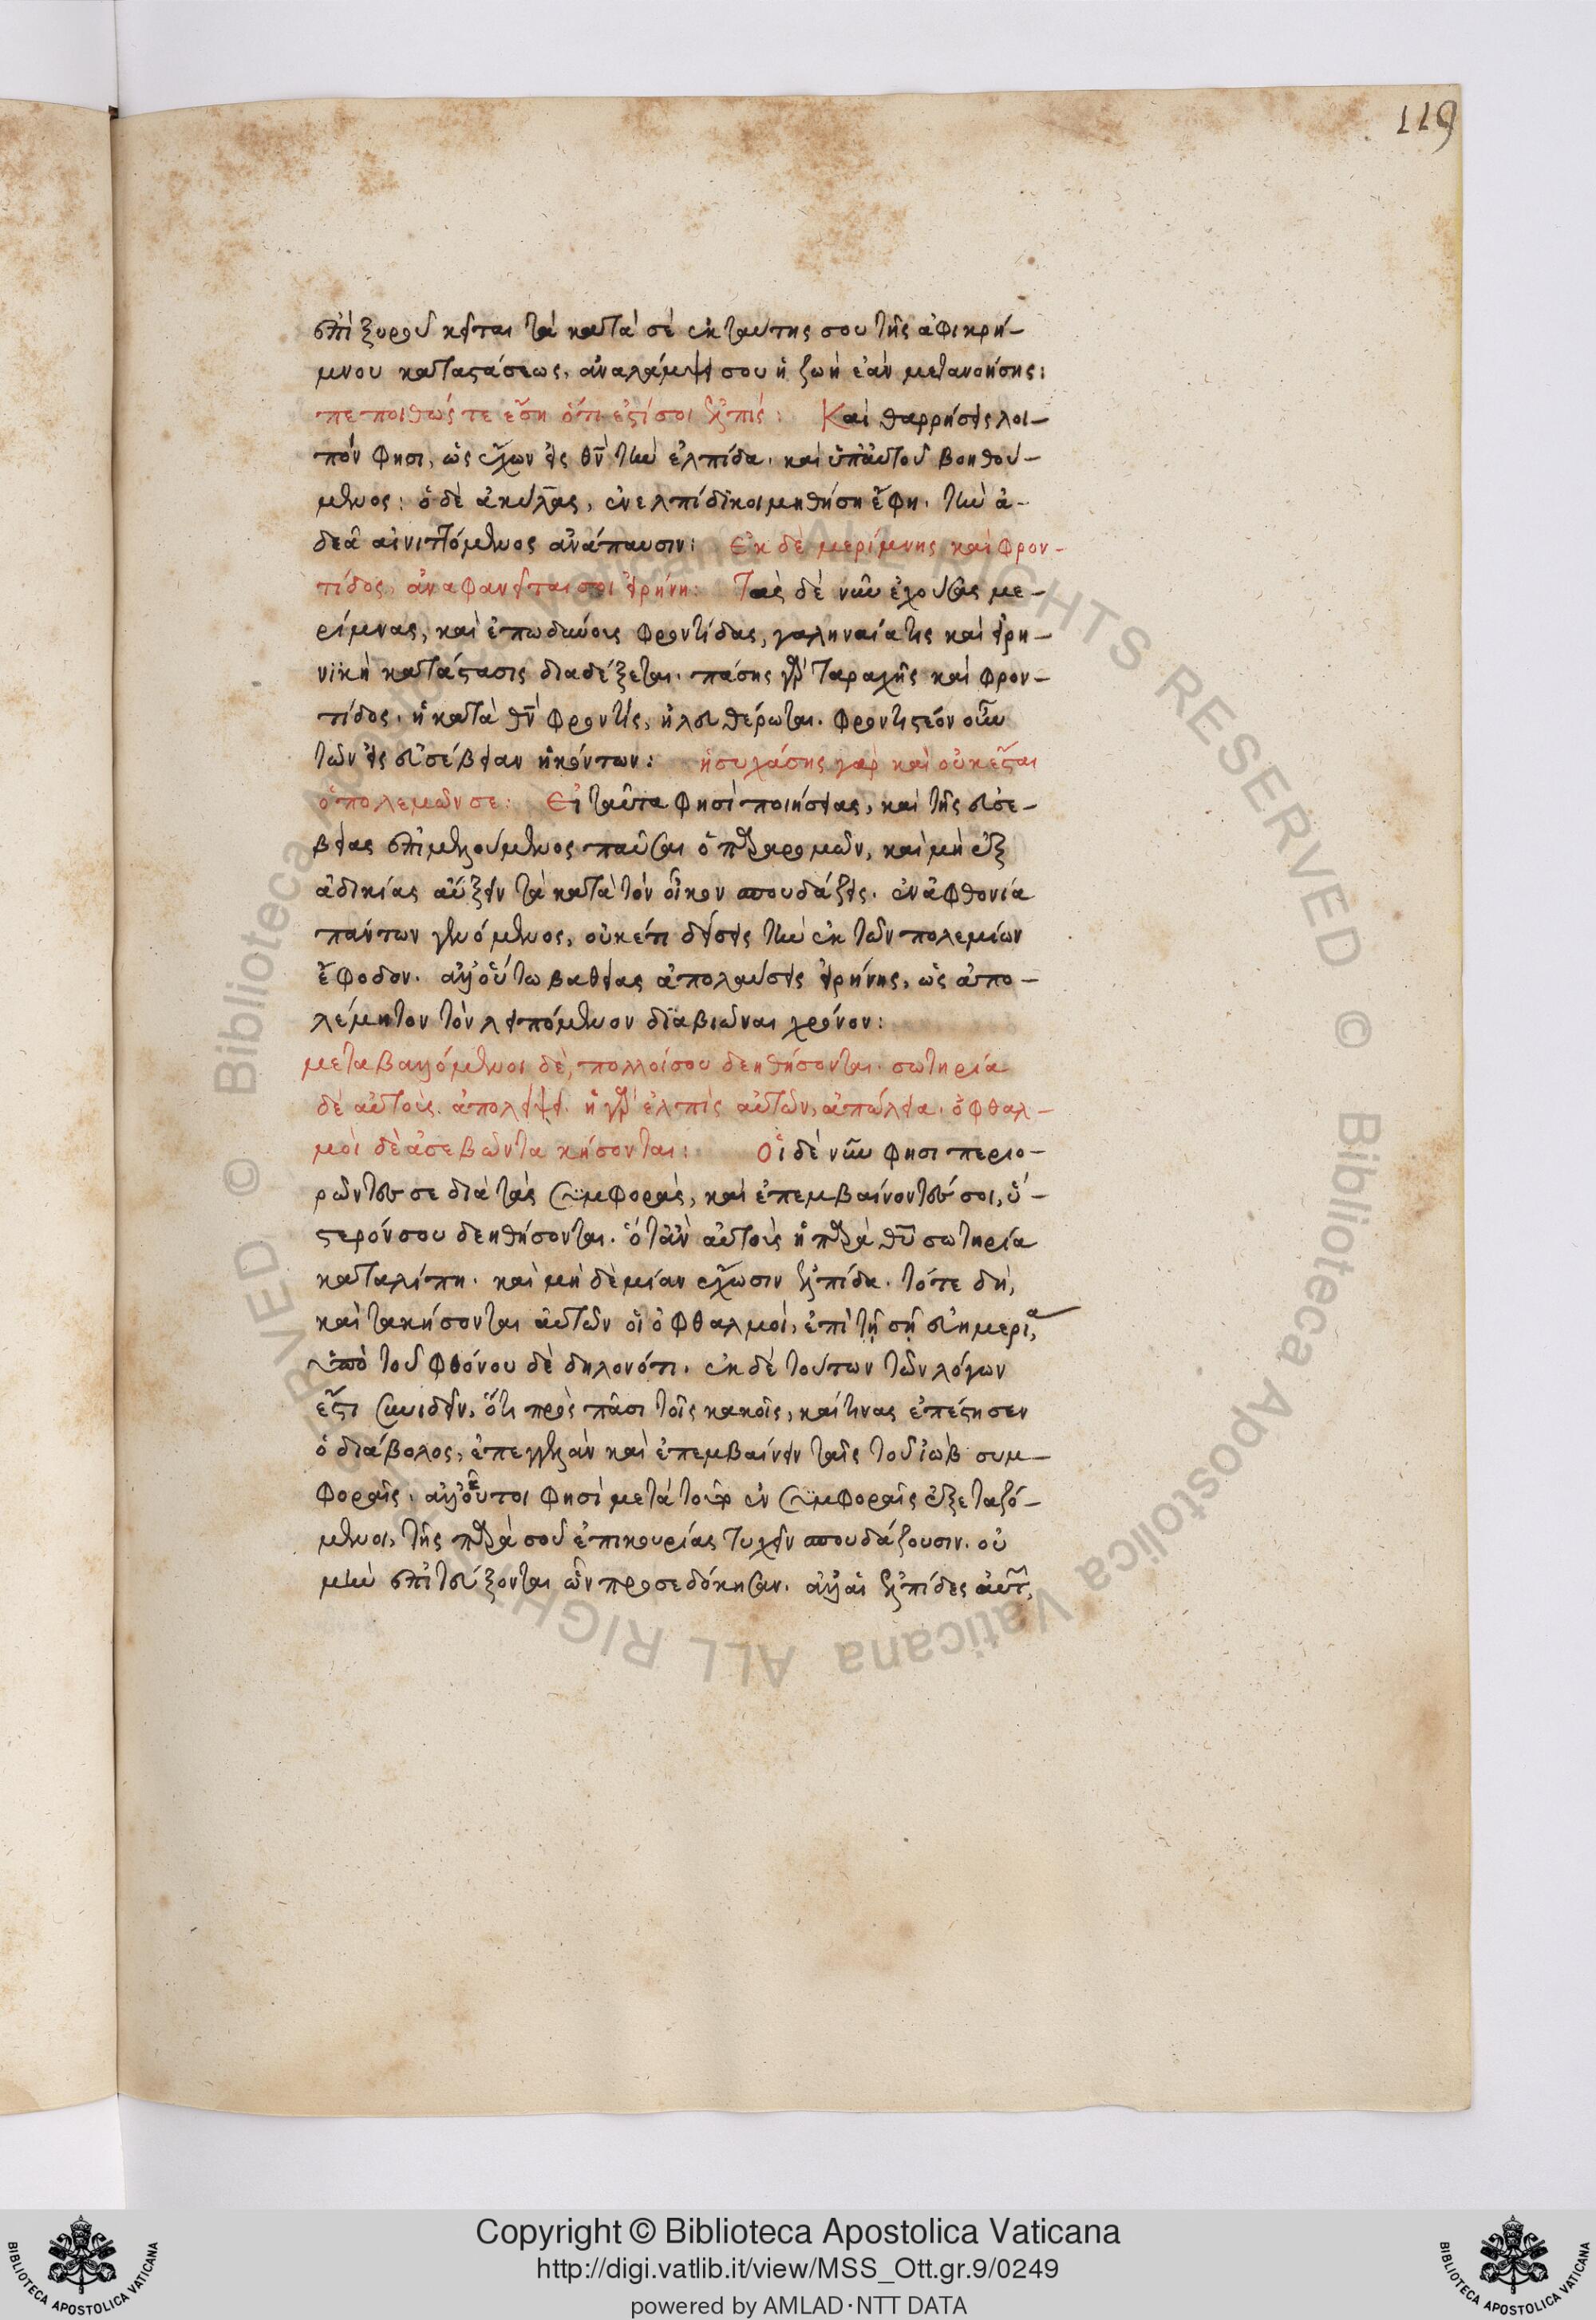 119
ἐπὶ ξυροῦ κεῖται τὰ κατὰ σὲ ἐκ ταύτης σου τῆς ἀφικρή-
μνου καταστάσεως, ἀναλάμψει σου ἡ ζωὴ ἐὰν μετανοήσης:
πεποιθώς τε ἔση ὅτι ἐστί σοι ἐλπίς: Καὶ θαρρήσεις λοι-
πόν φησι, ὡς ἔχων εἰς θν τὴν ἐλπίδα. καὶ ὑπ' αὐτοῦ βοηθού-
μενος: ὁ δὲ ἀκύλας, ἐν ἐλπίδι κοιμηθήση ἔφη. τὴν ἀ-
δεᾶ αἰνιττόμενος ἀνάπαυσιν: Ἐκ δὲ μερίμνης καὶ φρον-
τίδος, ἀναφανεῖται σοι εἰρήνη: Τὰς δὲ νῦν ἐχούσας με-
ρίμνας, καὶ ἐπωδύνοις φροντίδας, γαληναία τις καὶ εἰρη-
νϊκὴ κατάστασις διαδέξεται. πάσης γὰρ ταραχῆς καὶ φρον-
τίδος. ἡ κατὰ θν φροντὶς, ἠλευθέρωται. φροντιστέον οὖν
τῶν εἰς εὐσέβειαν ἡκόντων: ἡσυχάσης γαρ καὶ οὐκ ἔσται
ὁ πολεμῶν σε: Εἰ ταῦτα φησὶ ποιήσειας, καὶ τῆς εὐσε-
βείας ἐπιμελούμενος παῦσαι ὁ παρανομῶν, καὶ μὴ ἐξ
ἀδικίας αὔξειν τὰ κατὰ τὸν οἶκον σπουδάζεις. ἐν ἀφθονία
πάντων γενόμενος, οὐκέτι δείσεις τὴν ἐκ τῶν πολεμίων
ἔφοδον. ἀλλ' οὕτω βαθείας ἀπολαύσεις εἰρήνης, ὡς ἀπο-
λέμητον τὸν λειπόμενον διαβιῶναι χρόνον:
μεταβαλλόμενοι δὲ, πολλοί σου δεηθήσονται. σωτηρία
δὲ αὐτοὺς ἀπολείψει. ἡ γὰρ ἐλπὶς αὐτῶν, ἀπώλεια. ὀφθαλ-
μοὶ δὲ ἀσεβῶν τακήσονται: Οἱ δὲ νῦν φησι περιο-
ρῶντες σε διὰ τὰς συμφορὰς, καὶ ἐπεμβαίνοντές σοι, ὕ-
στερόν σου δεηθήσονται. ὅταν αὐτοὺς ἡ παρὰ θυ σωτηρία
καταλίπη. καὶ μὴ δὲ μίαν ἔχωσιν ἐλπίδα. τότε δὴ,
καὶ τακήσονται αὐτῶν οἱ ὀφθαλμοὶ, ἐπὶ τῇ σῇ εὐημερία,
ὑπὸ τοῦ φθόνου δὲ δηλονότι. ἐκ δὲ τούτων τῶν λόγων
ἔστι συνιδεῖν, ὅτι πρὸς πᾶσι τοῖς κακοῖς, καί τινας ἐπέστησεν
ὁ διάβολος, ἐπεγγελᾶν καὶ ἐπεμβαίνειν ταῖς τοῦ ἰὼβ συμ-
φοραῖς. ἀλλ' οὗτοι φησὶ μετὰ τοῦτο ἐν συμφοραῖς ἐξεταζό-
μενοι, τῆς παρὰ σοῦ ἐπικουρίας τυχεῖν σπουδάζουσιν. οὐ
μὴν ἐπιτεύξονται ὧν προσεδόκησαν. ἀλλ' αἱ ἐλπίδες αὐτ,
© Biblioteca Apostolica Vaticana ALL RIGHTS RESERVED © Biblioteca Apostolica Vaticana ALL RIGHTS RESERVED
Copyright © Biblioteca Apostolica Vaticana
http://digi.vatlib.it/view/MSS_Ott.gr.9/0249
powered by AMLAD·NTT DATA
BIBLIOTECA APOSTOLICA VATICANA
BIBLIOTECA APOSTOLICA VATICANA